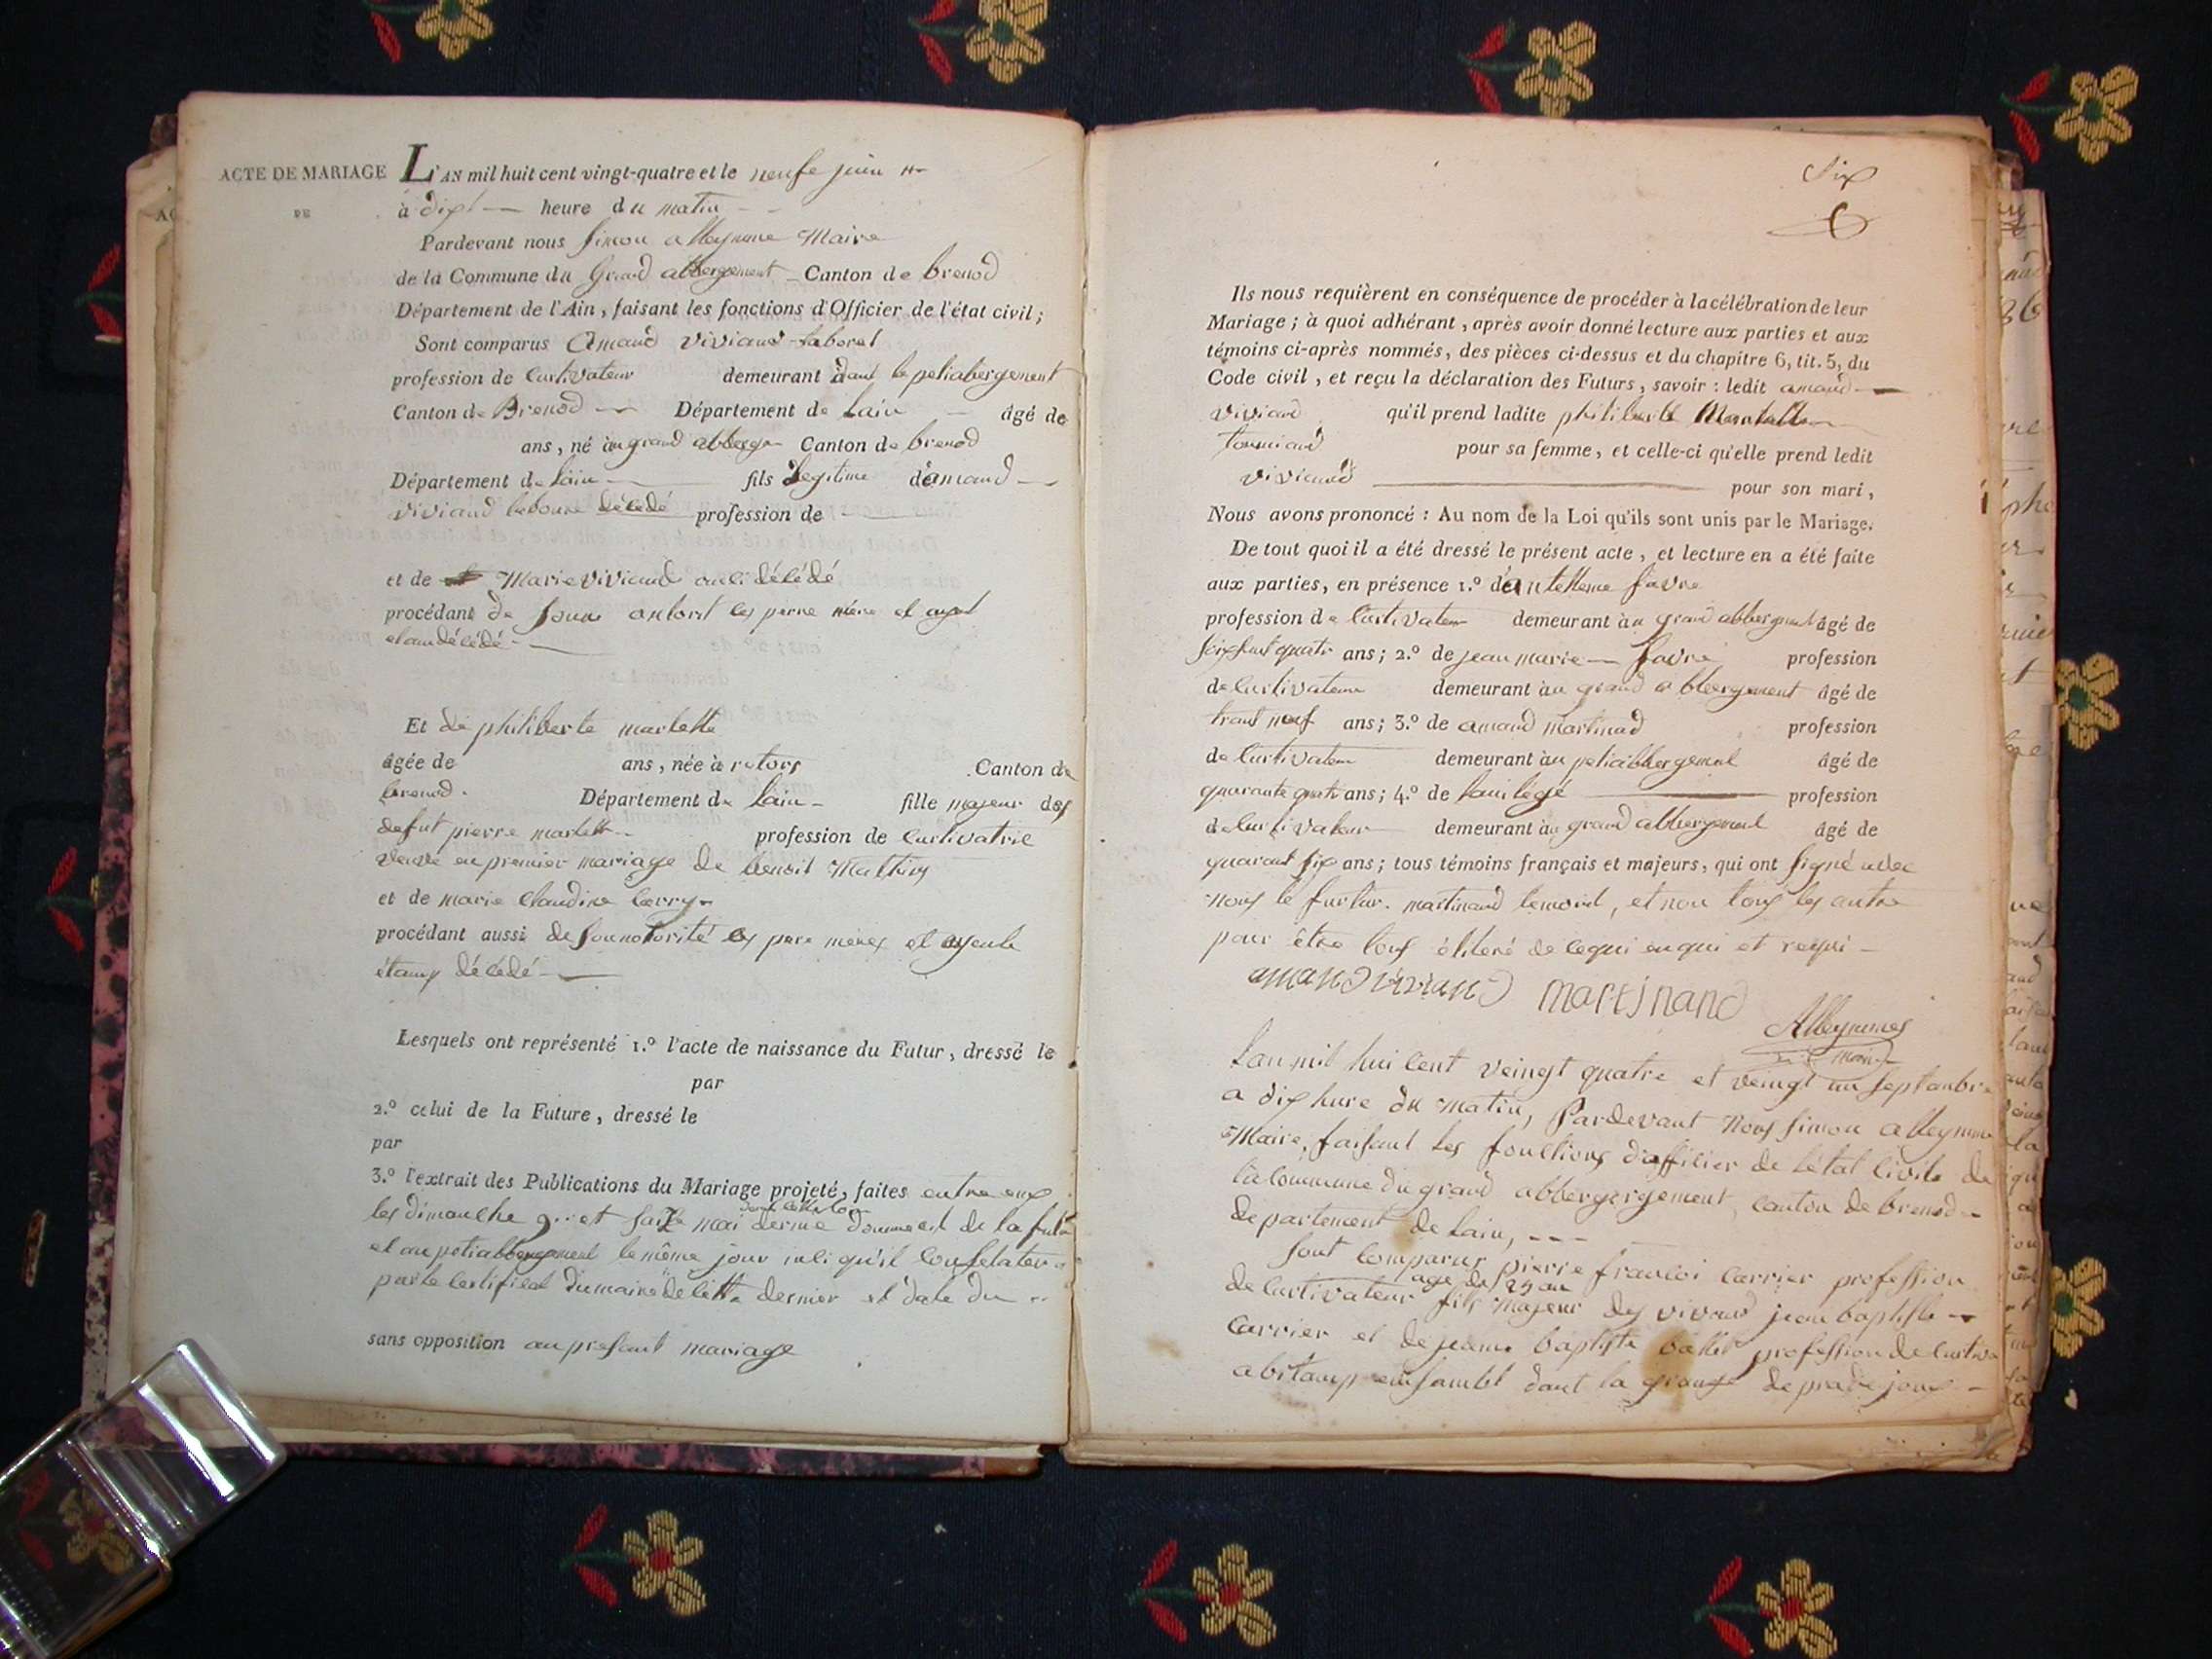 ACTE DE MARIAGE
DE
L'AN mil huit cent vingt-quatre et le neufe juin
à dix heure du matin
Pardevant nous Simon alleymme Maire
de la Commune du Grand abbergement Canton de brenod
Département de l'Ain, faisant les fonctions d'Officier de l'état civil;
Sont comparus Amand viviand
profession de Curtivateur demeurant dant le petiabergement
Canton de Brenod Département de Lain âgé de
ans, né àu grand abberge Canton de brenod
Département de Lain fils Legitime d'amand
viviand décédé profession de
et de Marie viviand décédé
procédant de
décédé
Et de philiberte martelle
âgée de ans, née à rotors Canton de
brenod. Département de Lain fille majeur des
defut pierre martelle profession de Curtivatrie
veuve en premier mariage de benoit Mathieu
et de marie Claudine Carry
procédant aussi de sounotorité les pere mères et ayeule
étamp décédé
Lesquels ont représenté 1.º l'acte de naissance du Futur, dressé le
par
2.º celui de la Future, dressé le
par
3.º l'extrait des Publications du Mariage projeté, faites entre eux
les dimanche 9 et saize mai dernie de la
et au petiabbergement le même jour qu'il
par le certificat du maire de dernier et date du
sans opposition au presant mariage
Six
6
Ils nous requièrent en conséquence de procéder à la célébration de leur
Mariage; à quoi adhérant, après avoir donné lecture aux parties et aux
témoins ci-après nommés, des pièces ci-dessus et du chapitre 6, tit. 5, du
Code civil, et reçu la déclaration des Futurs, savoir: ledit amand
viviand qu'il prend ladite philiberte Martelle
pour sa femme, et celle-ci qu'elle prend ledit
viviand pour son mari,
Nous avons prononcé: Au nom de la Loi qu'ils sont unis par le Mariage.
De tout quoi il a été dressé le présent acte, et lecture en a été faite
aux parties, en présence 1.º d'antelleme favre
profession de Curtivateur demeurant àu grand abbergement âgé de
soixsant quatr ans; 2.º de jean marie favre profession
de Curtivateur demeurant àu grand abbergement âgé de
trant neuf ans; 3.º de amand martinad profession
de Curtivateur demeurant àu petiabbergement âgé de
quarante quatr ans; 4.º de profession
de Curtivateur demeurant àu grand abbergement âgé de
quarant six ans; tous témoins français et majeurs, qui ont signé avec
nous le furtur. martinand temoint, et non tous les autre
pour être tous de cequi enqui et requi
amand viviand martinand
Alleymmes
maire
Lan mil hui cent veingt quatre et veingt un septanbre
a dix hure du matin, Pardevant Nous Simon alleymme
Maire, faisant les fonctions d'officier de l'état civile de
la commune du grand abbergergement, canton de brenod
departement de Lain,
Sont comparus pierre francoi Carrier profession
age de 29 an
de Curtivateur fils majeur des vivand jean baptiste
Carrier et de jeanne baptiste ballet profession de Curtiva
abitamp ensamble dant la grange de